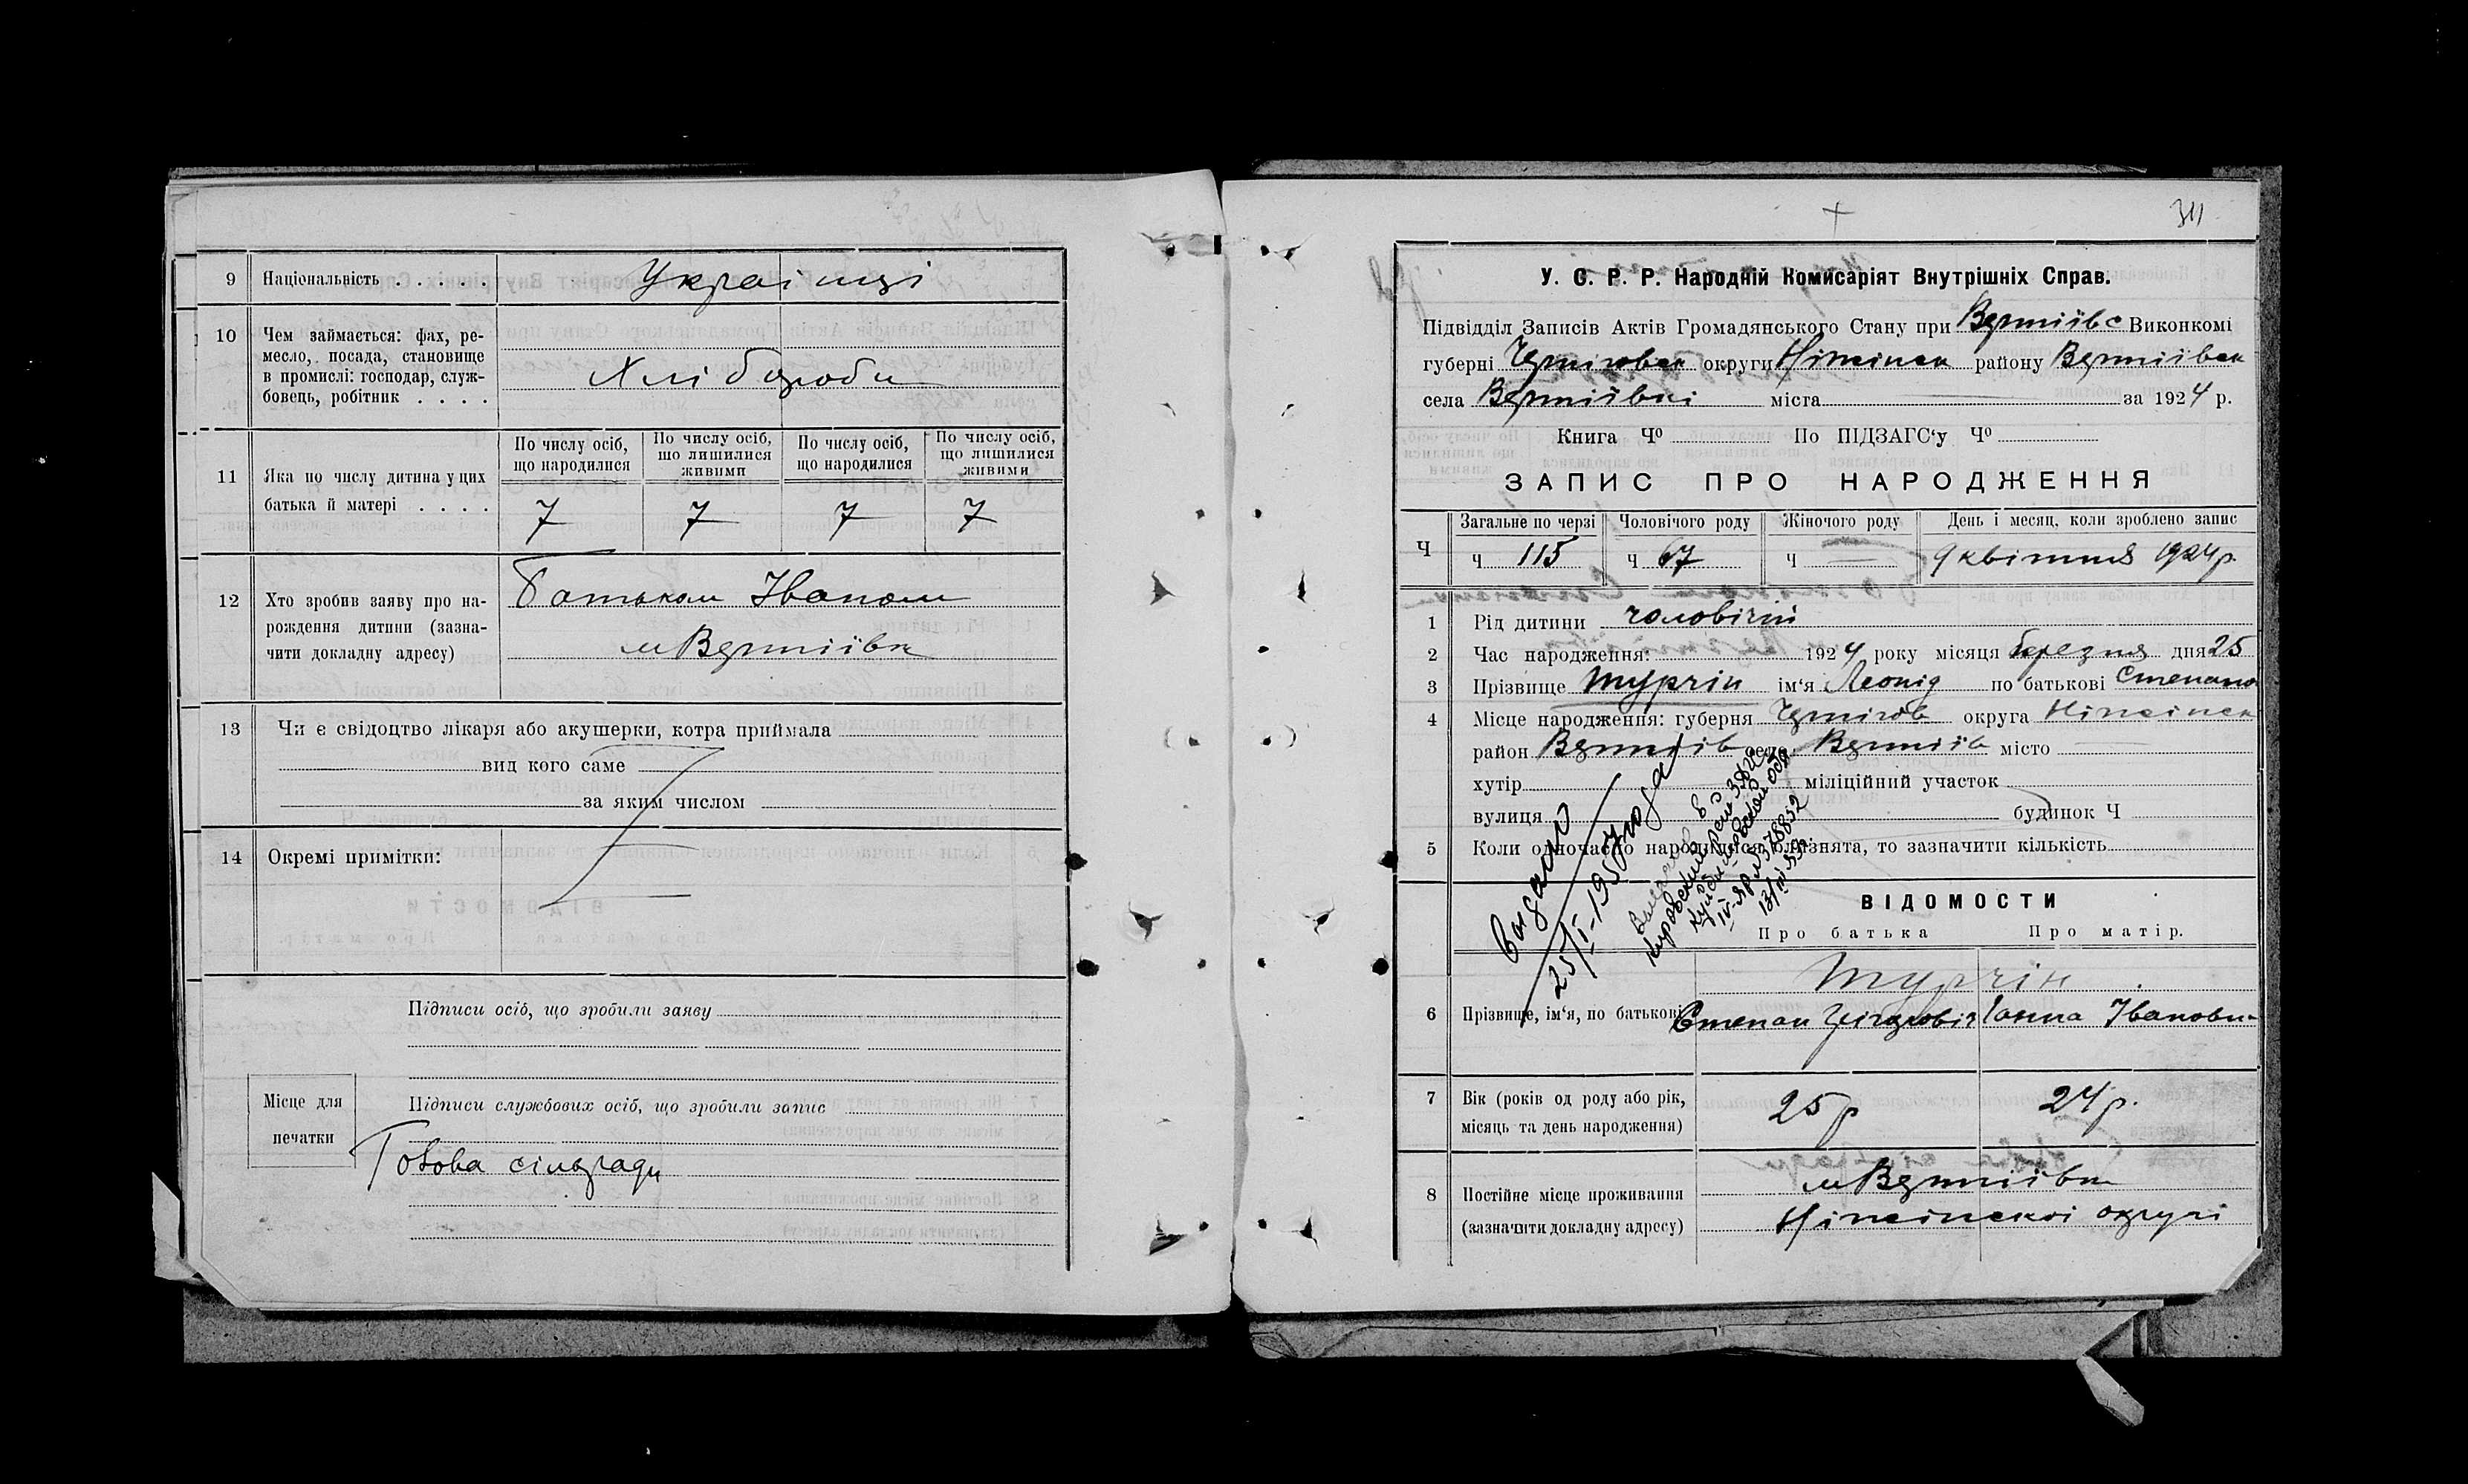 9 Національність . . . . . Українці
10 Чем займається: фах, ре-
месло, посада, становище
в промислі: господар, служ-
бовець, робітник . . . .
Хлібороби
11 Яка по числу дитина у цих
батька й матері . . . .
По числу осіб, що народилися
По числу осіб, що лишилися живими
По числу осіб, що народилися
По числу осіб, що лишилися живими
7 7 7 7
12 Хто зробив заяву про на-
рождення дитини (зазна-
чити докладну адресу)
Батьком Іваном
м Вертіївк
13 Чи є свідоцтво лікаря або акушерки, котра приймала
вид кого саме
за яким числом
14 Окремі примітки:
Підписи осіб, що зробили заяву
Місце для
печатки
Підписи службових осіб, що зробили запис
Голова сільради
311
У. С. Р. Р. Народній Комисаріят Внутрішніх Справ.
Підвідділ Записів Актів Громадянського Стану при Вертіївс Виконкомі
губерні Черніговск округи Ніжінск району Вертіївск
села Вертіївкі міста за 1924 р.
Книга Чо По ПІДЗАГС‘у Чо
ЗАПИС ПРО НАРОДЖЕННЯ
Ч
Загальне по черзі Чоловічого роду Жіночого роду День і месяц, коли зроблено запис
ч 115 ч 67 ч — 9 квітня 1924р.
1 Рід дитини чоловічій
2 Час народження: 1924 року місяця березня дня 25
3 Прізвище Турчін ім‘я Леонід по батькові Степано
4 Місце народження: губерня Чернігов округа Ніжінск
район Вертіїв село Вертіїв місто
хутір міліційний участок
вулиця будинок Ч
5 Коли одночасно народилися близнята, то зазначити кількість
выдано
25/I-1950 года
Кировским рай ЗАГС
IV-ЯР № 378852
ВІДОМОСТИ
Про батька Про матір.
6 Прізвище, ім‘я, по батькові
Турчін
Степан Ганна Івановн
7 Вік (років од роду або рік,
місяць та день народження)
25р 24р.
8 Постійне місце проживання
(зазначити докладну адресу)
м Вертіївк
Ніжінскоі округі